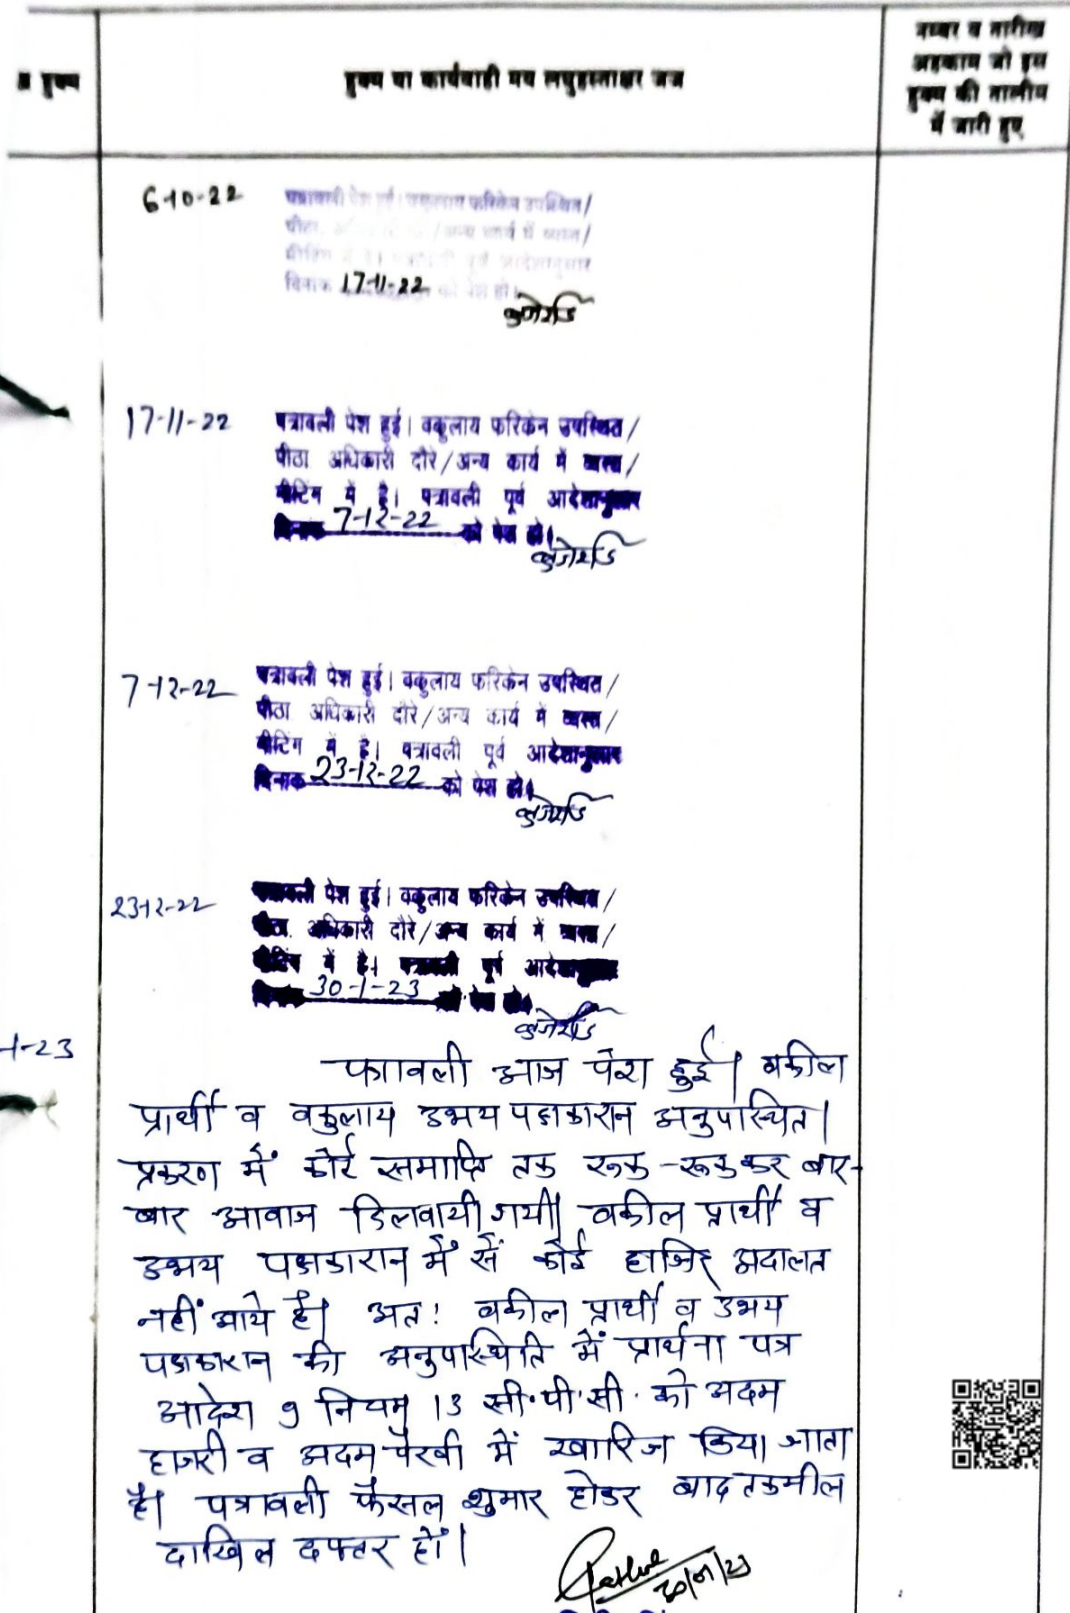 नम्बर व तारीख
अहकाम जो इस
हुक्म की तामील
में जारी हुए
हुक्म
हुक्म या कार्यवाही मय लघुहस्ताक्षर जज
6-10-22
पत्रावली पेश हुई। वकुलाय फरिकेन उपस्थित/
/अन्य कार्य में व्यस्त/
मीटिंग में है। पत्रावली पूर्व आदेशानुसार
दिनांक 17-11-22 को पेश हो।
17-11-22
पत्रावली पेश हुई। वकुलाय फरिकेन उपस्थित/
पीठा अधिकारी दौरे/अन्य कार्य में व्यस्त/
मीटिंग में है। पत्रावली पूर्व आदेशानुसार
दिनांक 7-12-22 को पेश हो।
7-12-22
पत्रावली पेश हुई। वकुलाय फरिकेन उपस्थित/
पीठा अधिकारी दौरे/अन्य कार्य में व्यस्त/
मीटिंग में है। पत्रावली पूर्व आदेशानुसार
दिनांक 23-12-22 को पेश हो।
23-12-22
पत्रावली पेश हुई। वकुलाय फरिकेन उपस्थित/
पीठा. अधिकारी दौरे/अन्य कार्य में व्यस्त/
मीटिंग में है। पत्रावली पूर्व आदेशानुसार
दिनांक 30-1-23 को पेश हो।
-1-23
पत्रावली आज पेश हुई। वकील
प्रार्थी व वकुलाय उभय पक्षकारान अनुपस्थित।
प्रकरण में कोर्ट समाप्ति तक रूक-रूककर बार-
बार आवाज दिलवायी गयी। वकील प्रार्थी व
उभय पक्षकारान में सें कोई हाजिर अदालत
नहीं आये है। अतः वकील प्रार्थी व उभय
पक्षकारान की अनुपस्थिति में प्रार्थना पत्र
आदेश 9 नियम 13 सी.पी.सी. को अदम
हाजरी व अदम पैरवी में खारिज किया जाता
है। पत्रावली फैसल शुमार होकर बाद तकमील
दाखिल दफ्तर हों।
30/01/23